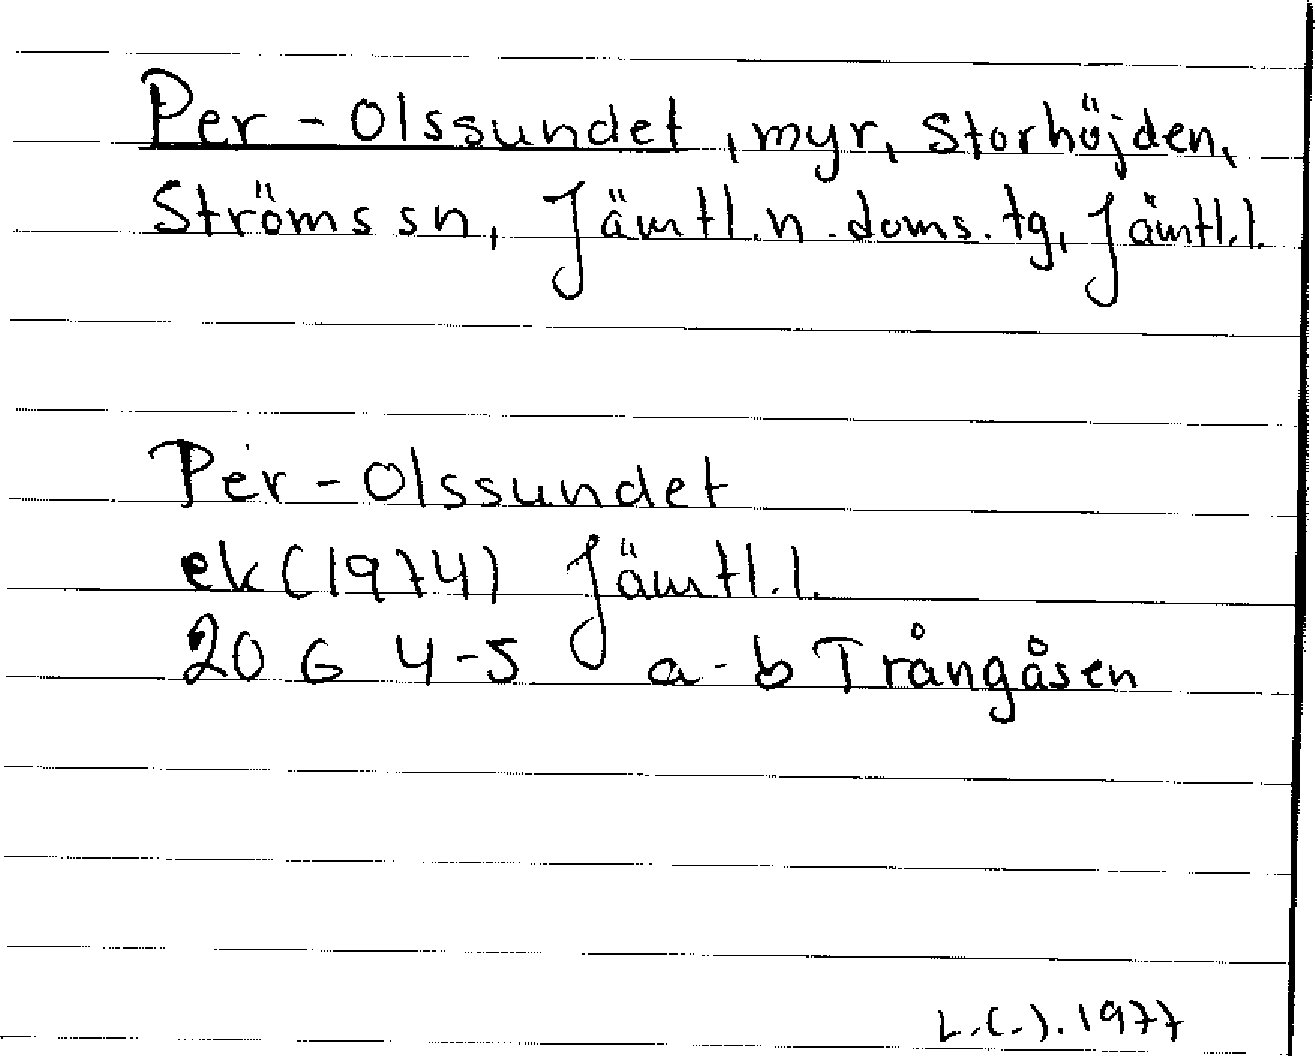 Per-Olssundet, myr, Storhöjden,
Ströms sn, Jämtl.n.doms.tg, Jämtl.l.
Per-Olssundet
ek (1974) Jämtl.l.
20 G 4-5 a-b Trångåsen
1977